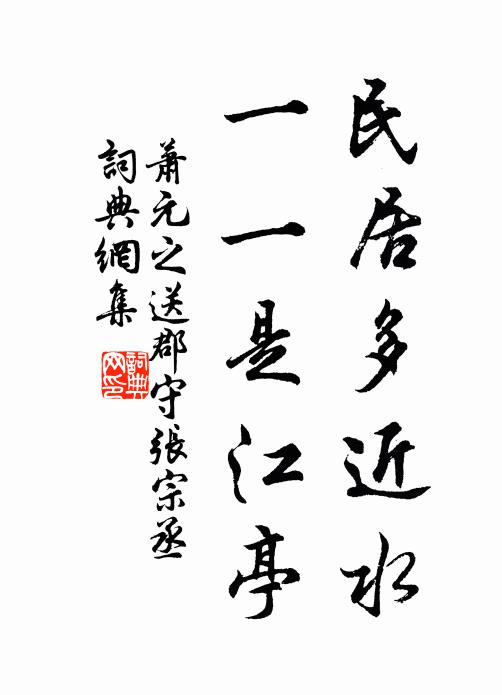 民居多近水
一一是江亭
蕭元之送郡守張宗丞
詞典網集
詞典网印